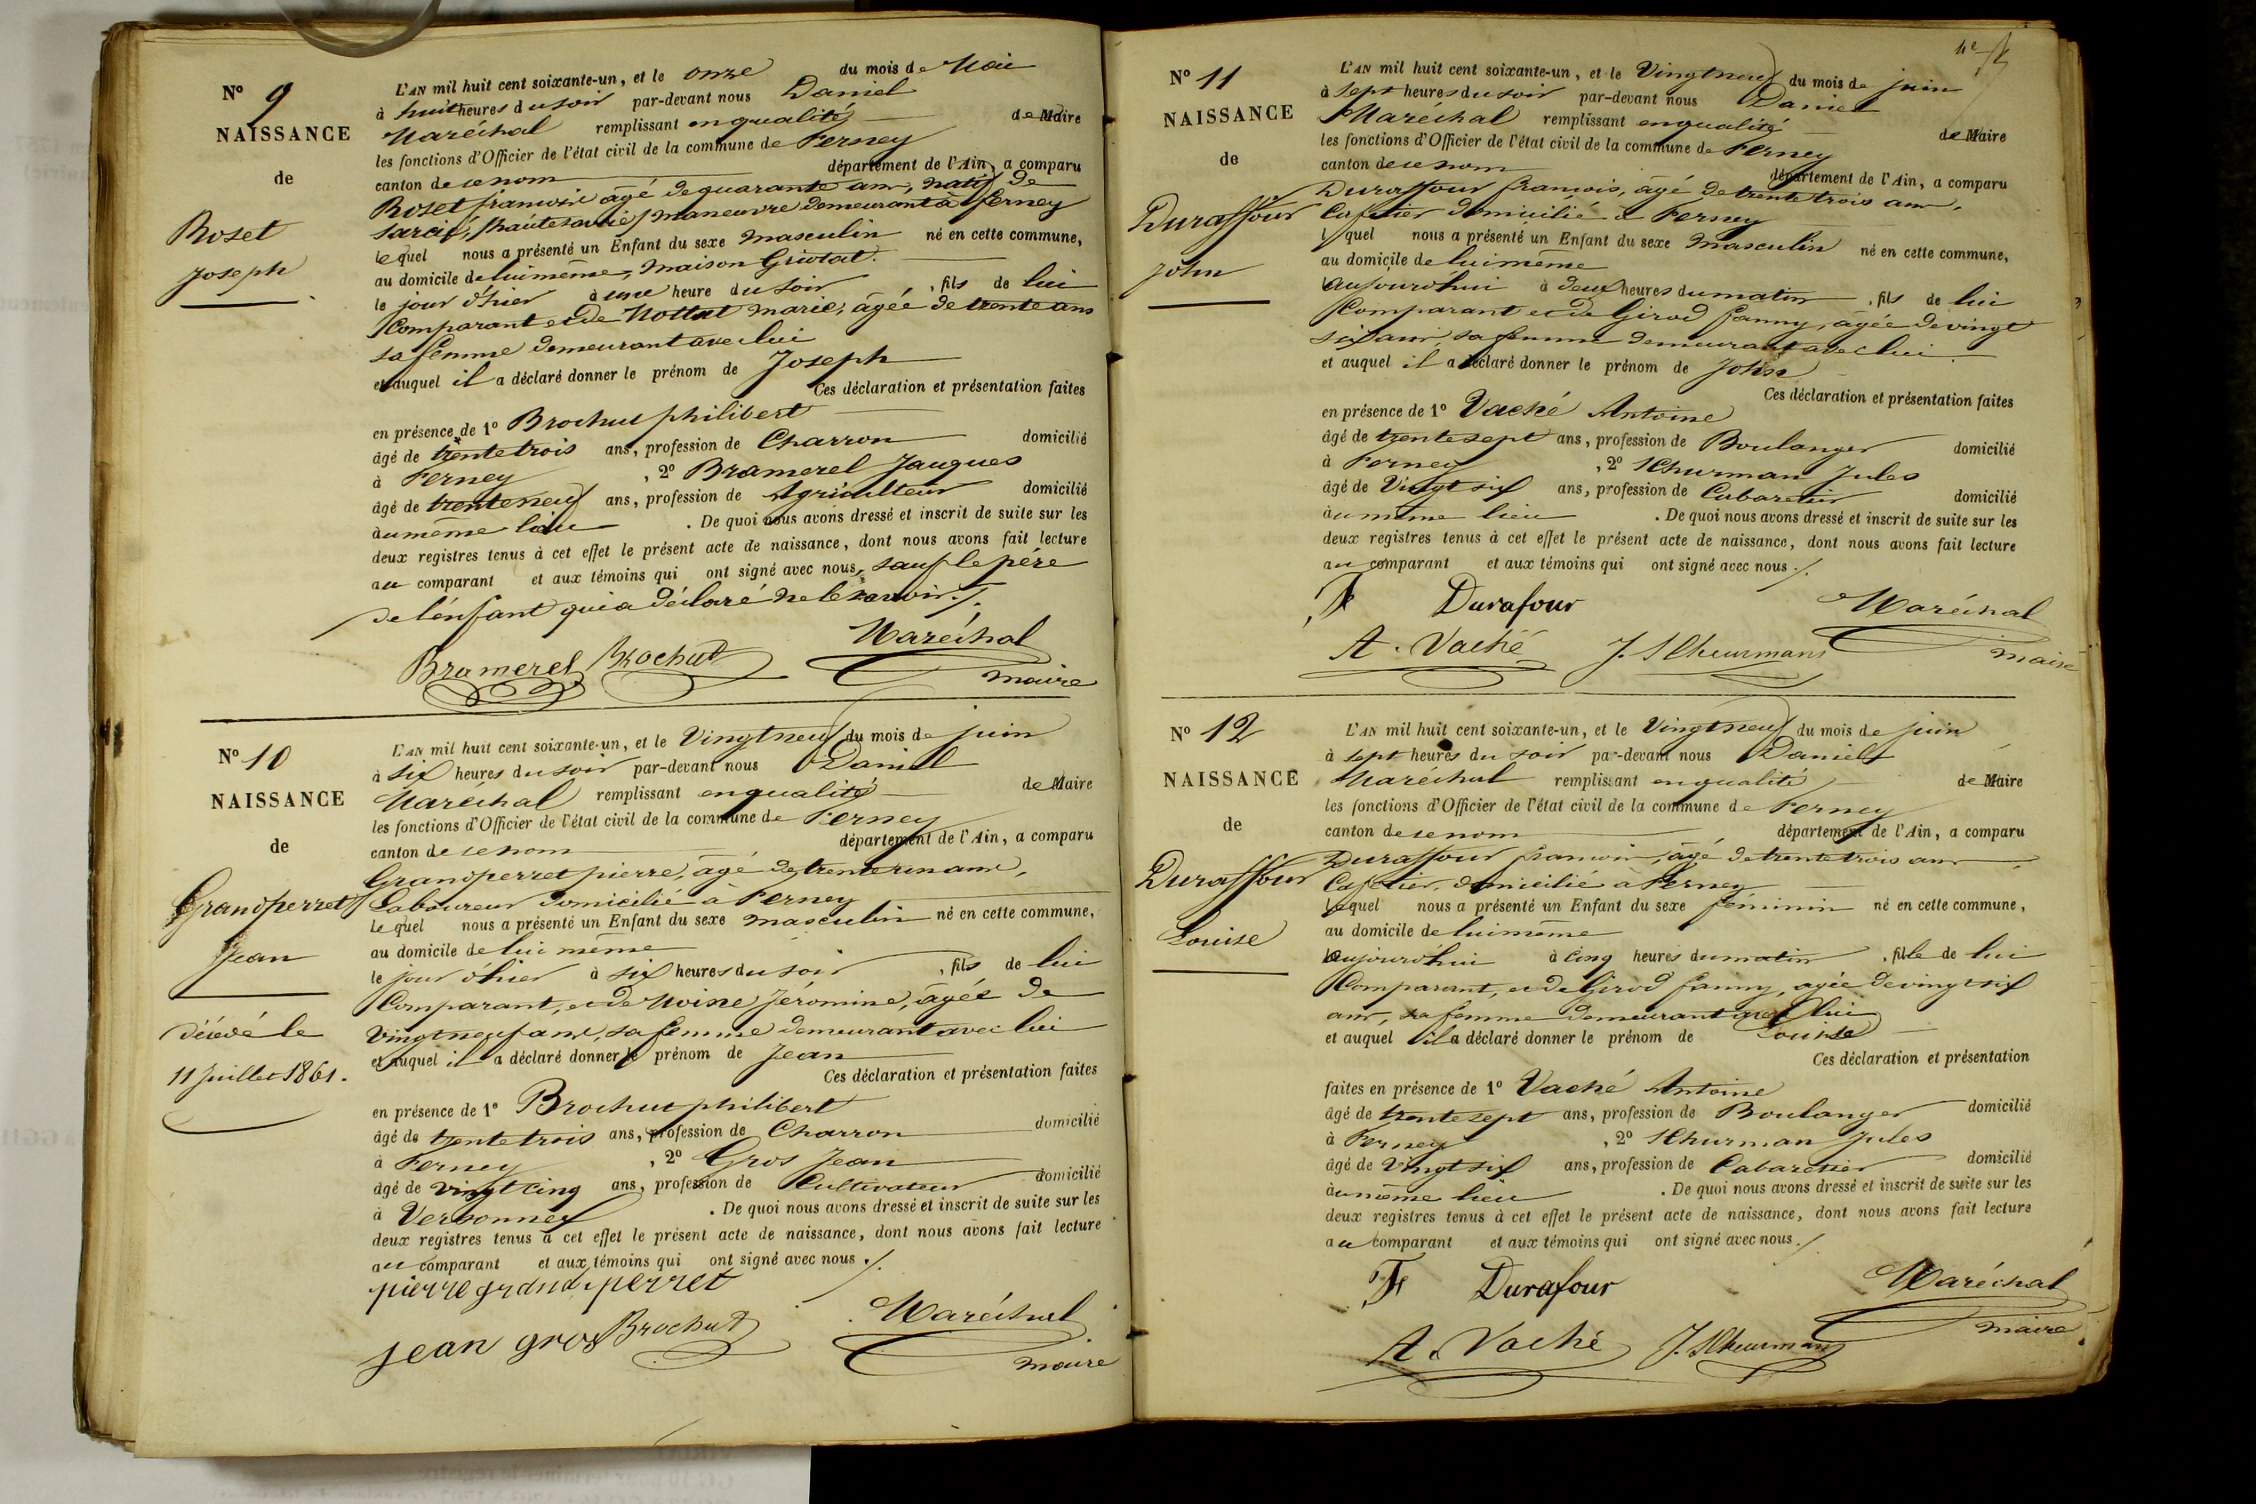 N° 9
NAISSANCE
de
Roset
Joseph
L'AN mil huit cent soixante-un, et le onze du mois de Mai
à huit heures du soir par-devant nous Daniel
Maréchal remplissant en qualité de Maire
les fonctions d'Officier de l'état civil de la commune de Ferney
canton de ce nom département de l'Ain, a comparu
Roset francois âgé de quarante ans, natif de
(haute savoie) maneuvre demeurant à ferney
lequel nous a présenté un Enfant du sexe masculin né en cette commune,
au domicile de lui même, maison Griotat.
le jour d'hier à une heure du soir, fils de lui
Comparant et de marie, âgée de trente ans
sa femme demeurant avec lui
et auquel il a déclaré donner le prénom de Joseph
Ces déclaration et présentation faites
en présence de 1° Brochut philibert
âgé de trente trois ans, profession de Charron domicilié
à Ferney, 2° Bramerel Jauques
âgé de trente neuf ans, profession de Agriculteur domicilié
à u même lieu. De quoi nous avons dressé et inscrit de suite sur les
deux registres tenus à cet effet le présent acte de naissance, dont nous avons fait lecture
au comparant et aux témoins qui ont signé avec nous, sauf le père
de l'énfant qui a déclaré ne le savoir ./.
Bramerel Brochut Maréchal
maire
N° 10
NAISSANCE
de
Grandperret
Jean
décédé le
11 Juillet 1861.
L'AN mil huit cent soixante-un, et le Vingt neuf du mois de juin
à six heures du soir par-devant nous Daniel
Maréchal remplissant en qualité de Maire
les fonctions d'Officier de l'état civil de la commune de Ferney
canton de ce nom département de l'Ain, a comparu
Grandperret pierre, âgé de trente un ans,
Laboureur domicilié à Ferney
Lequel nous a présenté un Enfant du sexe masculin né en cette commune,
au domicile de lui même
le jour d'hier à six heures du soir, fils de lui
Comparant, et de Moine Jéromine, âgée de
Vingt neuf ans, sa femme demeurant avec lui
et auquel il a déclaré donner le prénom de Jean
Ces déclaration et présentation faites
en présence de 1° Brochut philibert
âgé de trente trois ans, profession de Charron domicilié
à Ferney, 2° Gros Jean
âgé de vingt cinq ans, profession de Cultivateur domicilié
à Versonnex. De quoi nous avons dressé et inscrit de suite sur les
deux registres tenus à cet effet le présent acte de naissance, dont nous avons fait lecture
au comparant et aux témoins qui ont signé avec nous ./.
pierre grandperret
jean gros Brochut Maréchal
maire
N° 11
NAISSANCE
de
Duraffour
John
L'AN mil huit cent soixante-un, et le Vingt neuf du mois de juin
à sept heures du soir par-devant nous Daniel
Maréchal remplissant en qualité de Maire
les fonctions d'Officier de l'état civil de la commune de Ferney
canton de ce nom département de l'Ain, a comparu
Duraffour francois, âgé de trente trois ans,
Cafetier domicilié à Ferney
lequel nous a présenté un Enfant du sexe masculin né en cette commune,
au domicile de lui même
aujourd'hui à deux heures du matin, fils de lui
Comparant et de Girod fanny, âgée de vingt
six ans, sa femme demeurant avec lui
et auquel il a déclaré donner le prénom de John
Ces déclaration et présentation faites
en présence de 1° Vaché Antoine
âgé de trente sept ans, profession de Boulanger domicilié
à Ferney, 2° Schurman Jules
âgé de Vingt six ans, profession de Cabaretier domicilié
à u même lieu. De quoi nous avons dressé et inscrit de suite sur les
deux registres tenus à cet effet le présent acte de naissance, dont nous avons fait lecture
au comparant et aux témoins qui ont signé avec nous ./.
Durafour Maréchal
A. Vaché J. Scheurmann maire
N° 12
NAISSANCE
de
Duraffour
Louise
L'AN mil huit cent soixante-un, et le Vingt neuf du mois de juin
à sept heures du soir par-devant nous Daniel
Maréchal remplissant en qualité de Maire
les fonctions d'Officier de l'état civil de la commune de Ferney
canton de ce nom département de l'Ain, a comparu
Duraffour francois, âgé de trente trois ans,
Cafetier, domicilié à Ferney
Lequel nous a présenté un Enfant du sexe féminin né en cette commune,
au domicile de lui même
aujourd'hui à cinq heures du matin, fille de lui
Comparant, et de Girod fanny, agée de vingt six
ans, sa femme demeurant avec lui
et auquel il a déclaré donner le prénom de Louise
Ces déclaration et présentation
faites en présence de 1° Vaché Antoine
âgé de trente sept ans, profession de Boulanger domicilié
à Ferney, 2° Schurman Jules
âgé de Vingt six ans, profession de Cabaretier domicilié
à u même lieu. De quoi nous avons dressé et inscrit de suite sur les
deux registres tenus à cet effet le présent acte de naissance, dont nous avons fait lecture
au comparant et aux témoins qui ont signé avec nous ./.
Durafour Maréchal
A. Vaché J. Scheurmann maire